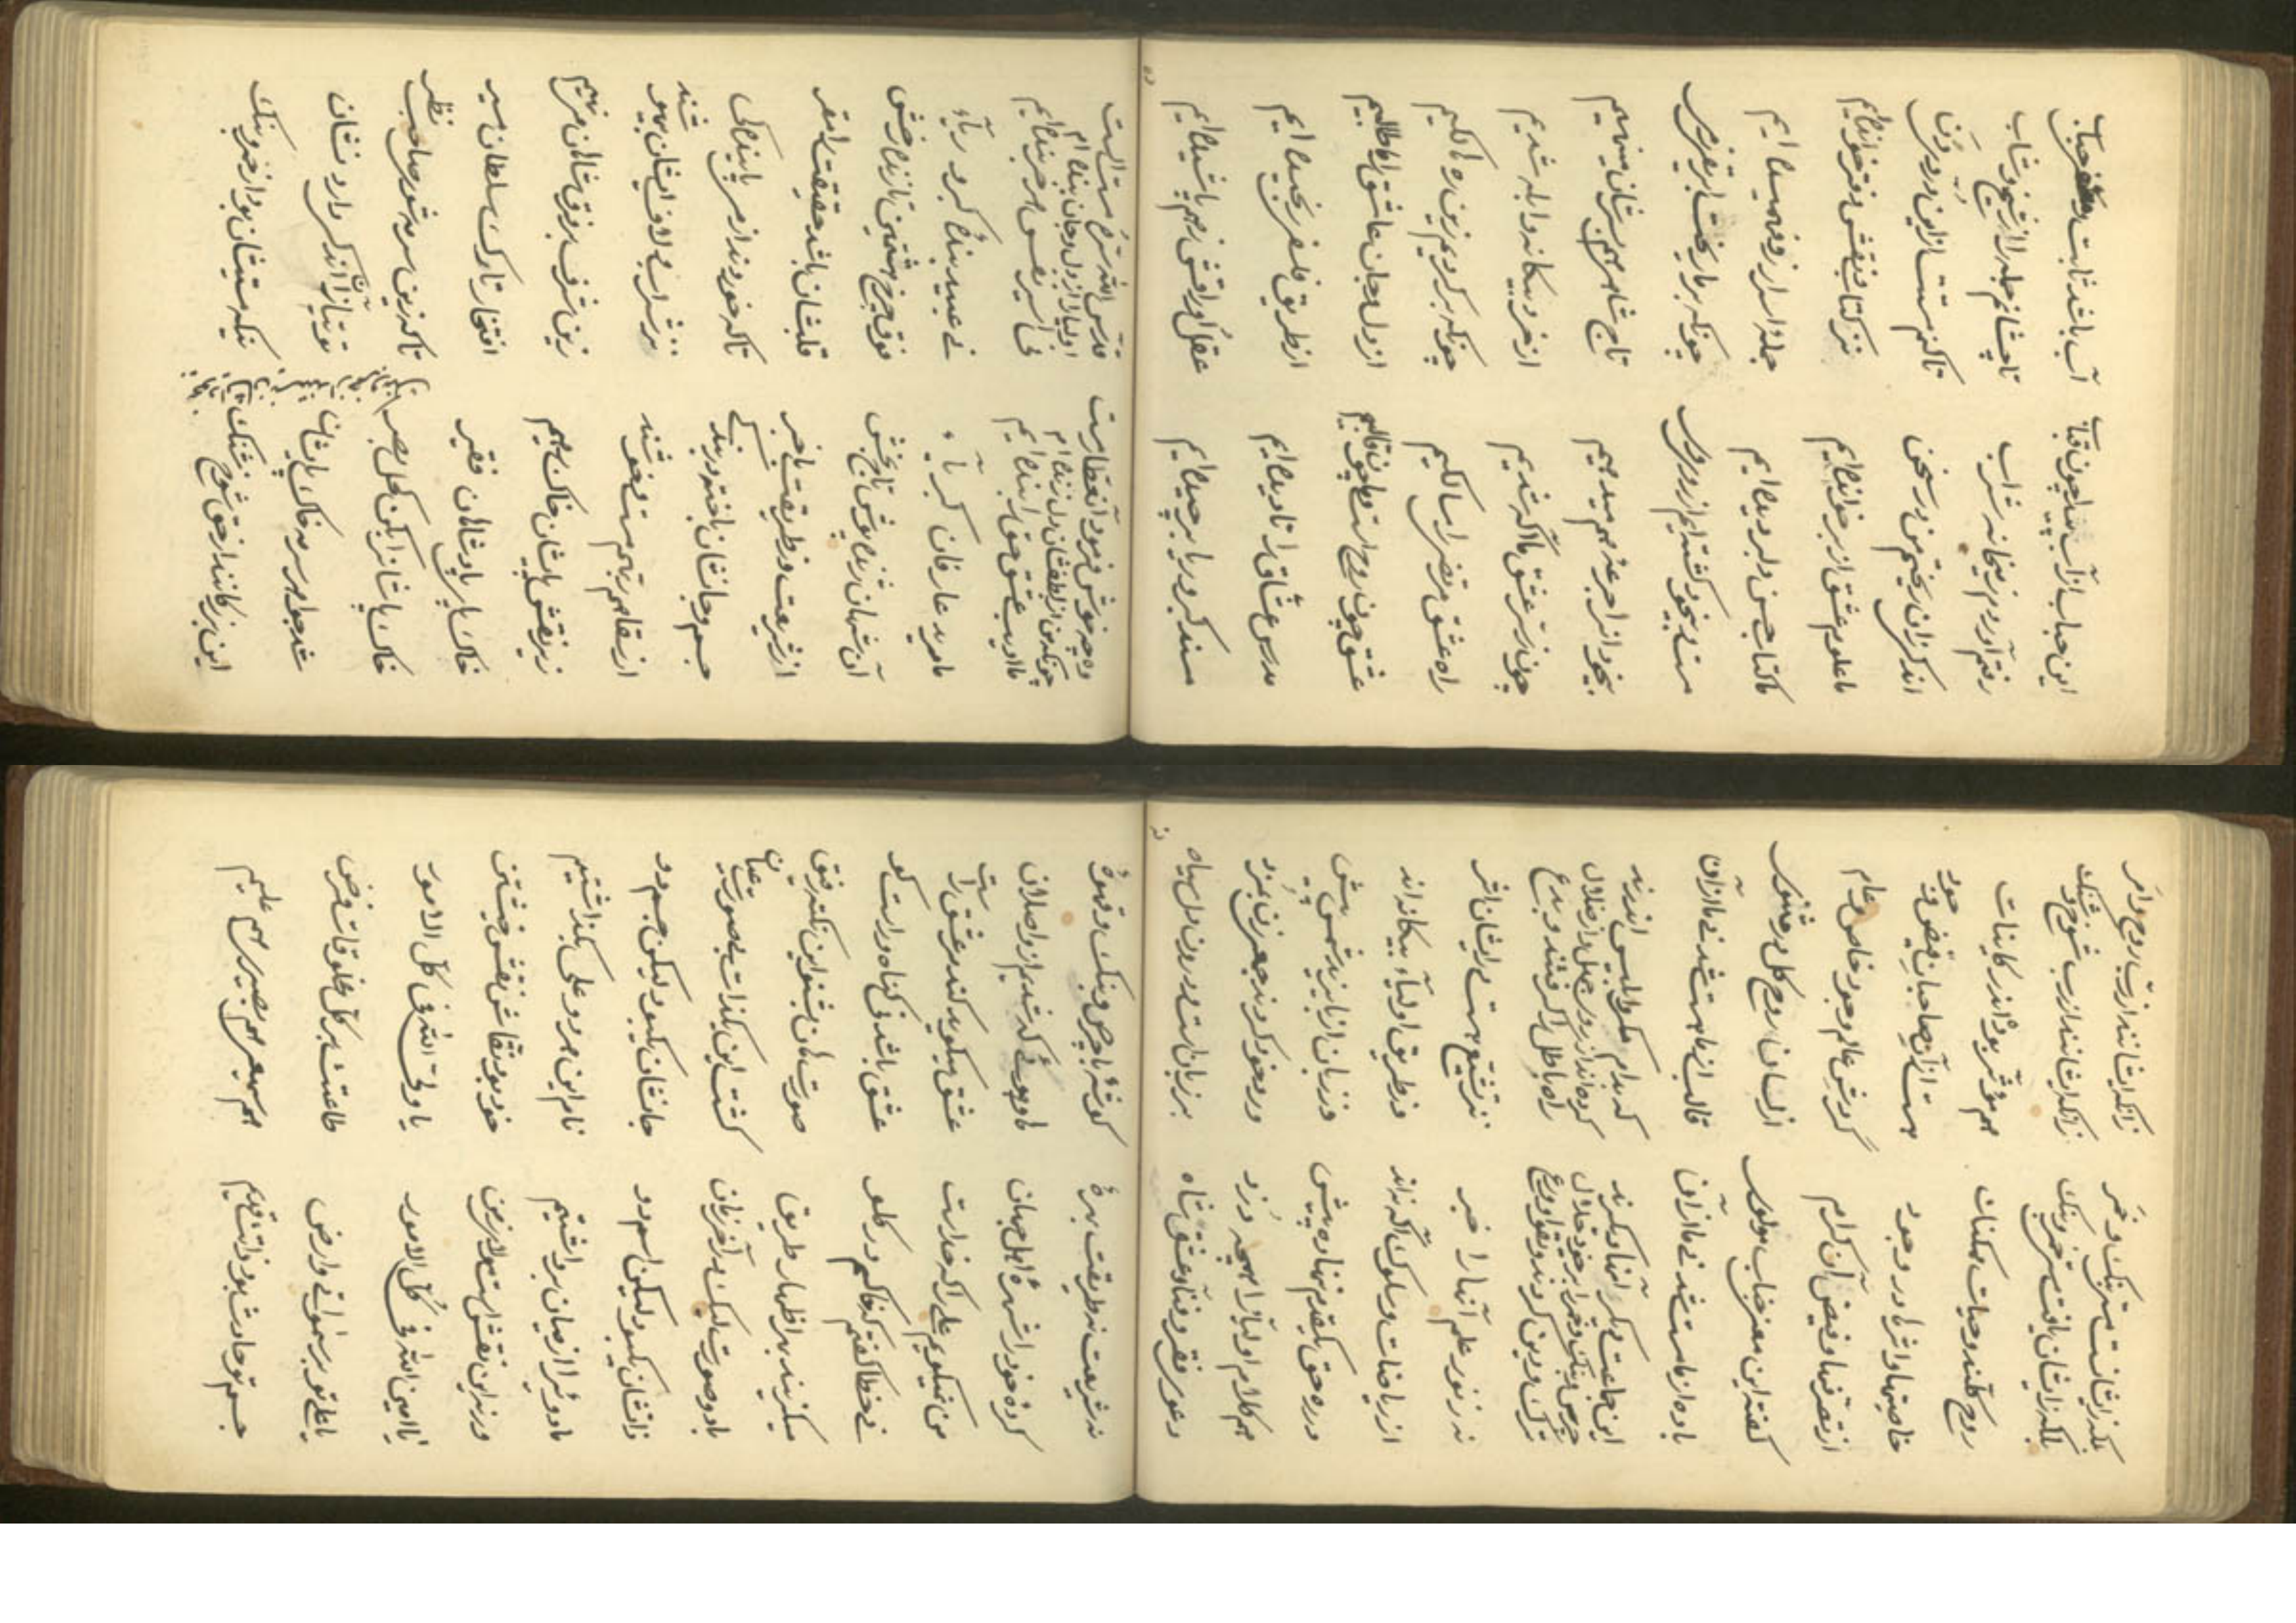 این حباب از آب پیدا چون قباب
آب باشد ثابت حباب
رفتم آوردم ز میخانه شراب
تا چشانم جمله را از شیخ و شاب
اندکی زان ریختم من در سخن
تا کنم مستت ازین دردی دن
ما علوم عشق از بر خوانده ایم
نز کتاب و نقش دفتر خوانده ایم
ما کتاب حسن دلبر دیده ایم
جمله اسرار از وی فهمیده ایم
مست و بیخود گشته ایم از روی
چونکه بر ما ریخت ابریق
بیخودانرا جرعه می میدهیم
تاج شاهی بر سرشان مینهیم
چون ز سر عشق ما آگه شدیم
از خرد بیگانه و ابله شدیم
راه عشق مرتضی را سالکیم
چونکه برگردیم زین ره هالکیم
عشق چون روح است و ما چون قالبیم
از دل و جان عاشقانرا طالبیم
درس عشاق را تا دیده ایم
از طریق فلسفی رنجیده ایم
مسند کبر و ریا برچیده ایم
عقل کو را نقش پاشیده ایم
وه چه خوش فرمود آن عطار مست
قدس الله سره مست الست
چونکه من از لطفشان دل زنده ام
اولیا را از دل و جان بنده ام
ما ادیب عشق حق را بنده ایم
نی اسیر نفس هر خربنده ایم
ما مرید عارفان کبریآء
نی عبید بندهٔ کبر و ریآء
آن شهان ژنده پوش تاج بخش
فوق چرخ هشتمین تازنده رخش
از شریعت وز طریقت باخبر
قلبشان باشد حقیقت را مقر
جسم و جانشان باخته در بندگی
تا که خوردند از می پایندگی
از سقاهم ربهم مست و خوشند
شراب ایشان بیهشند
زیر نقش پایشان خاک رهیم
زین شرف بر فرق شاهان می نهیم
خاک پای پادشاهان فقیر
افتخار تارک سلطان و میر
خاک پاشانرا بکن کحل بصر
تا که زین سرمه شوی صاحب نظر
شد جواهر سرمه خاک پایشان
توتیا زان اندکی دارد نشان
این بزرگانند از حق شوخ و شنگ
نیکه مستیشان بود از خمر و بنگ
بلکه ایشانست مستی بنگ و خمر
زانکه ایشانند از رب روح و امر
بلکه زایشان یافت مستی خمر و بنگ
زانکه ایشانند از رب شوخ و شنگ
روح کلند و حیات ممکنات
هم مؤثر بوده اندر کاینات
خاصیتها و اثرها در وجود
هست از آن صاحبان فیض و جود
از تصرفها و فیض آن کرام
گردش عالم وجود خاص و عام
گفته این معنی جناب مولوی
از لسان روح کل در مثنوی
باده از ما مست شد نی ما از آن
قالب از ما هست شد نی ما از آن
این جماعت دیگر آنها دیگرند
که بدام مکر و ابلیس اندرند
چرس و بنگ و خمر را بر خود حلال
کرده اند از روی جهل و از ضلال
ترک دین کردند و تقوا و ورع
راه باطل را گرفتند و بدع
نه ز نور علم آنها را خبر
نز تشیع هست در ایشان اثر
از ریاضات و سلوک آگه نه اند
وز طریق اولیآء بیگانه اند
در ره حق یکقدم ننهاده پیش
وز زبان از بایزید بیش
هم کلام اولیا را همچو دزد
ورد خود کردند بمزد
دعوی فقر و فنا و عشق شاه
بر زبان است و درون دل سیاه
نه شریعت نه طریقت بهرهٔ
گوشهٔ با چرس و بنگ و قهوهٔ
کرده خود را شهرهٔ اهل جهان
گشته ایم از واصلان
من نمیگویم علی را که خداست
عشق میگوید که در عشق
نی خطا گفتم که خاکم در گلو
عشق باشد نی گناه او راست گو
بهر اظهار طریق
بشنو این نکته رفیق
صورت لیک در آخر زمان
گشت این یکذات بیصورت عیان
ذاتشان یک بود ولیکن اسم دو
جانشان یک بود ولیکن جسم دو
ما دوئی را از میان برداشتیم
نام این هر دو علی بگذاشتیم
ورنه این نقش است
خود بود نقاش نقش خویشتن
یا امین الله فی کل الامور
یا ولی الله فی کل الامور
یا علی تو بر سمواتی و ارض
طاعتت بر کل مخلوقات فرض
جسم تو حادث بود ذاتت قدیم
هم سمیعی هم بصیری هم علیم